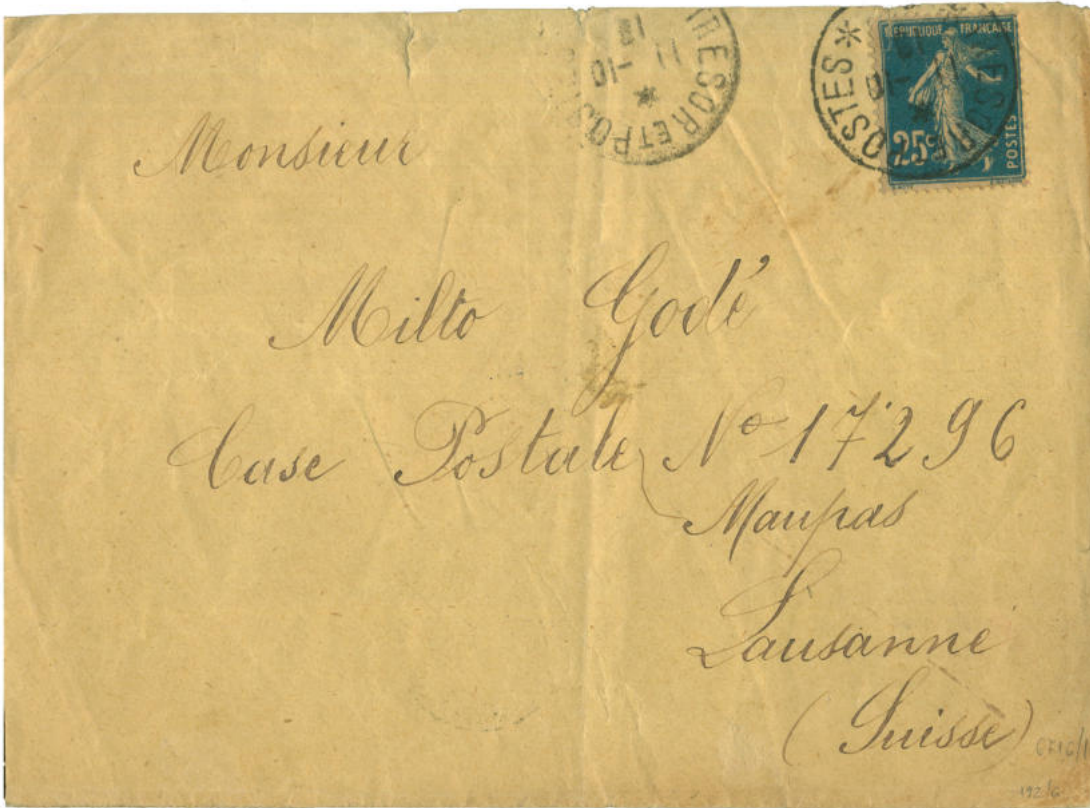 TRESOR ET POSTES *
11 -10
POSTES *
REPUBLIQUE FRANÇAISE
25c
POSTES
Monsieur
Milto Godé
Case Postale No 17296
Maupas
Lausanne
(Suisse)
192/6